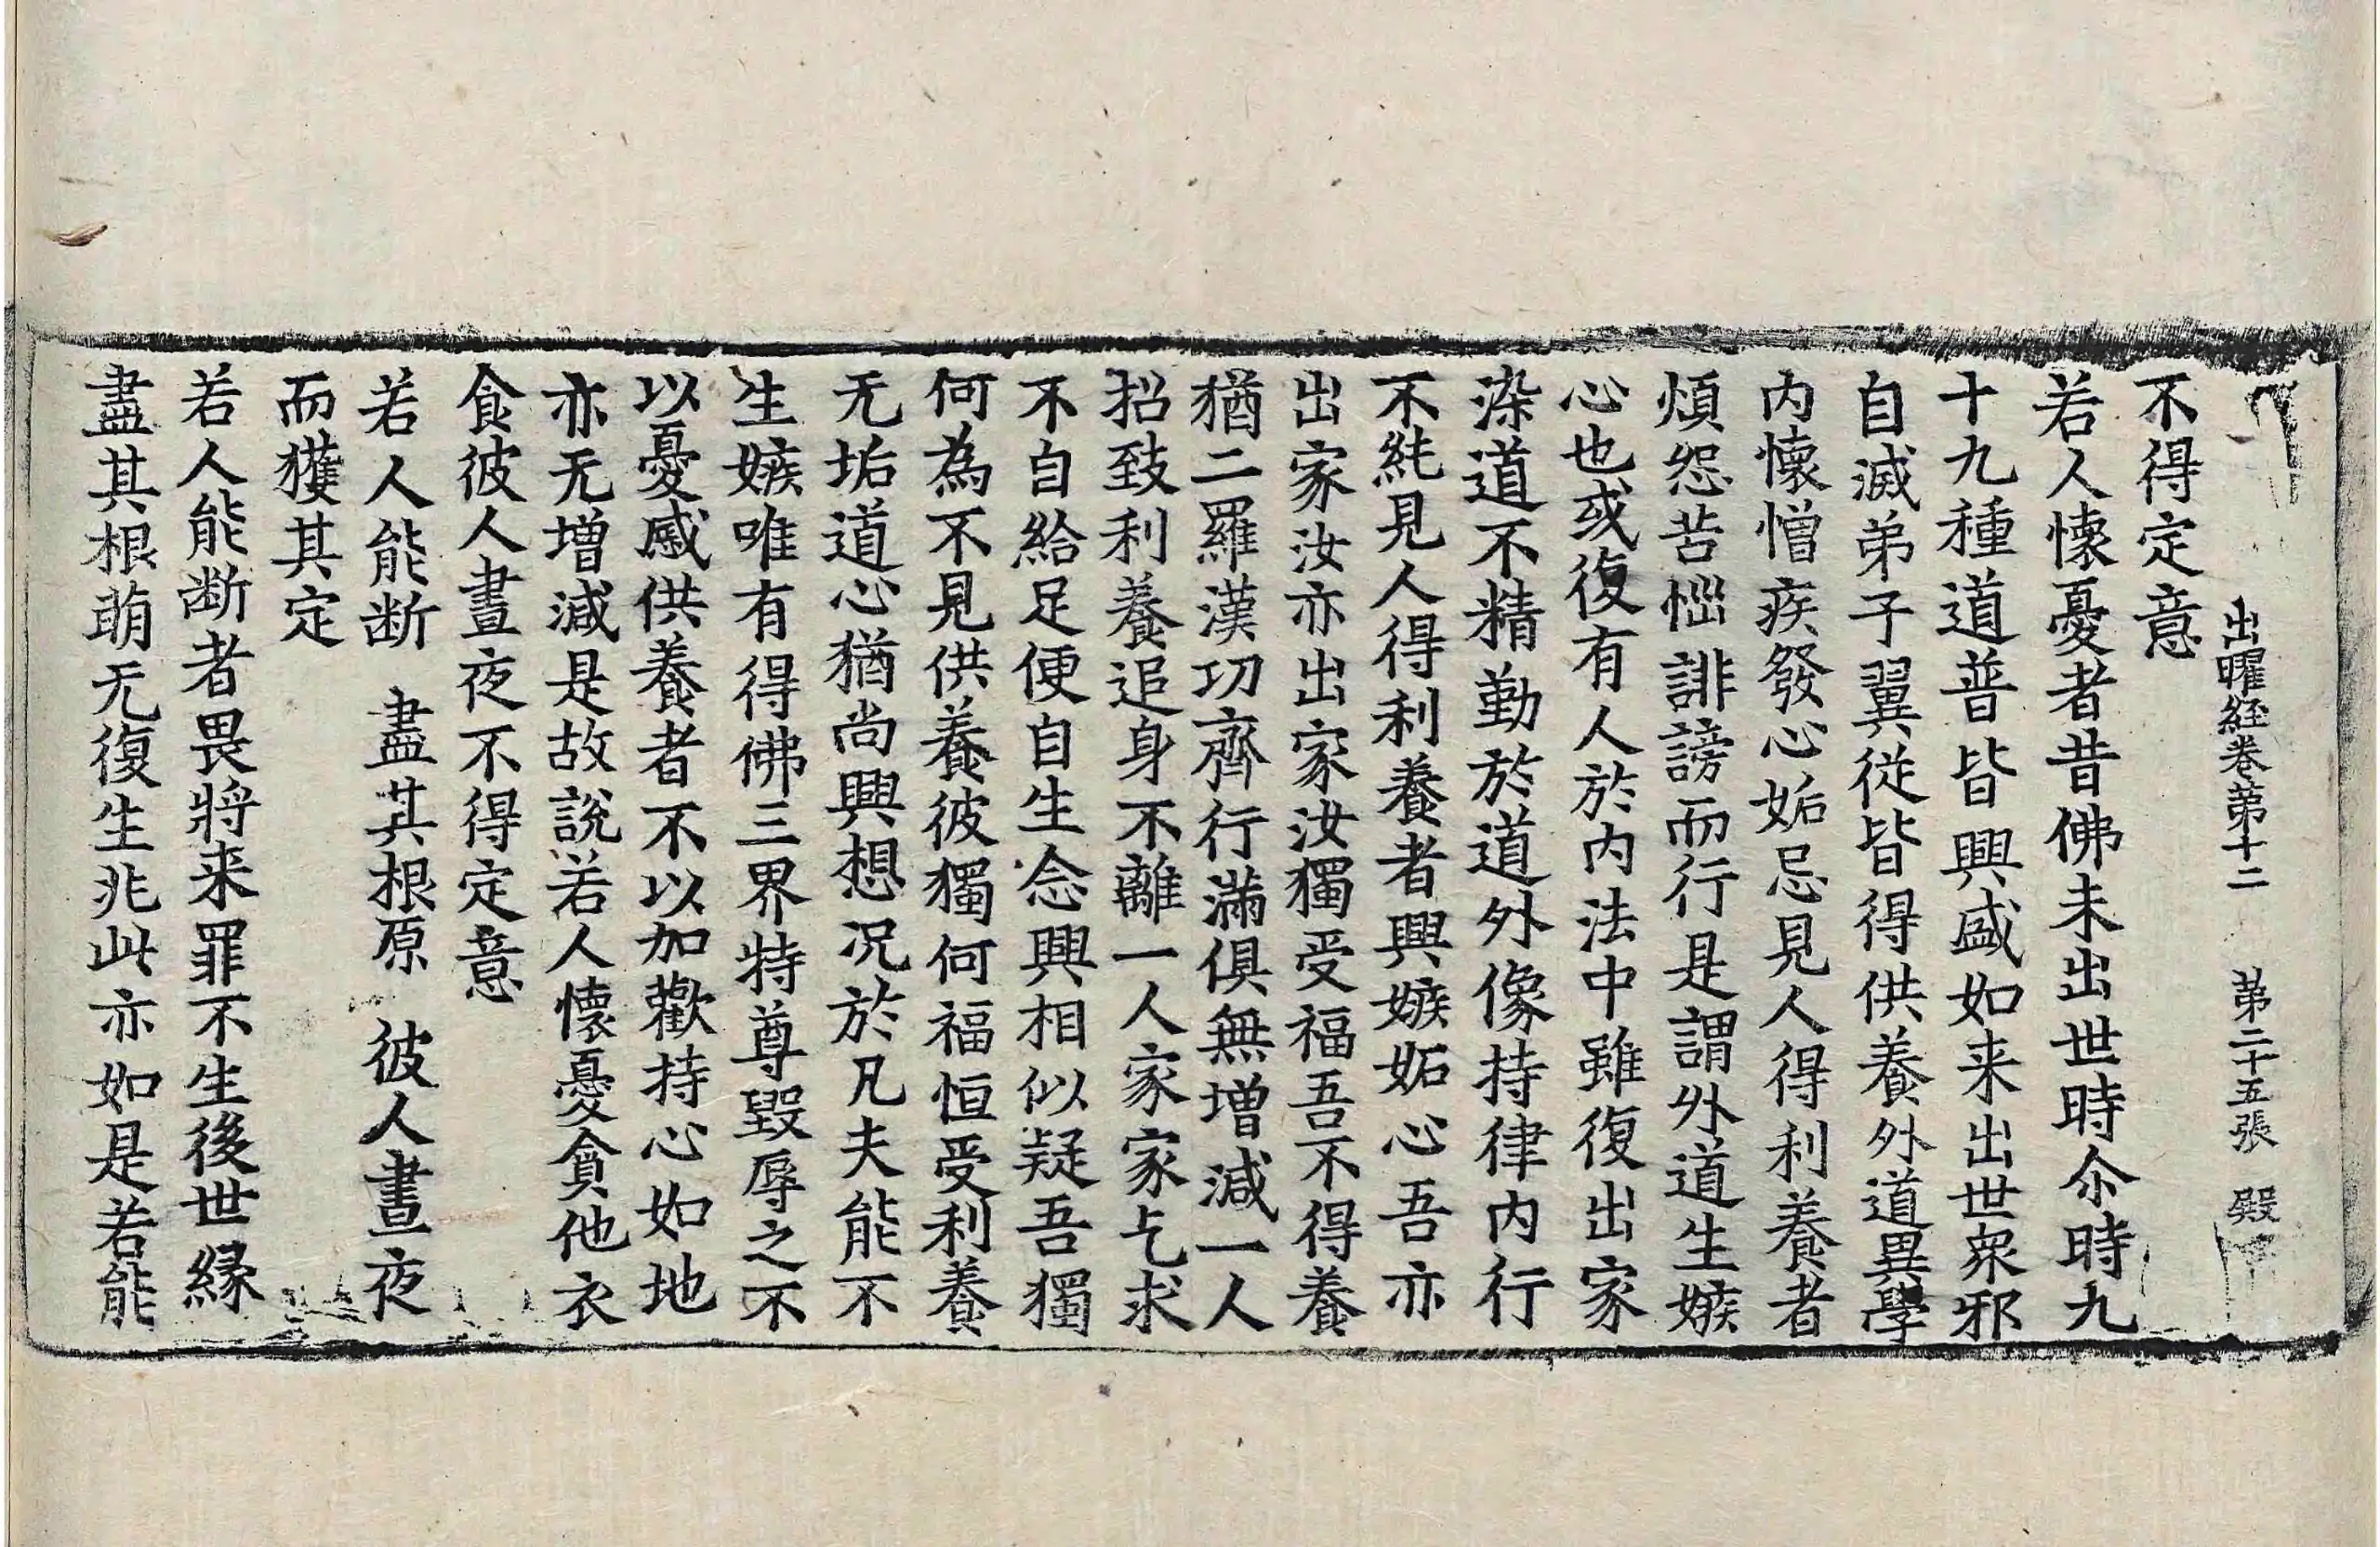 出曜経卷苐十二 苐二十五張 殿
不得定意
若人懐憂者昔佛未出世時尒時九
十九種道普皆興盛如来出世衆邪
自滅弟子翼従皆得供養外道異學
内懐憎疾發心妬忌見人得利養者
煩怨苦惱誹謗而行是謂外道生嫉
心也或復有人於内法中雖復出家
染道不精勤於道外像持律内行
不純見人得利養者興嫉妬心吾亦
出家汝亦出家汝獨受福吾不得養
猶二羅漢功齊行滿俱無増減一人
招致利養追身不離一人家家乞求
不自給足便自生念興相似疑吾獨
何為不見供養彼獨何福恒受利養
无垢道心猶尚興想况於凡夫能不
生嫉唯有得佛三界特尊毀辱之不
以憂慼供養者不以加歡持心如地
亦无増減是故說若人懐憂貪他衣
食彼人晝夜不得定意
若人能断 盡其根原 彼人晝夜
而獲其定
若人能断者畏將来罪不生後世縁
盡其根萌无復生兆此亦如是若能